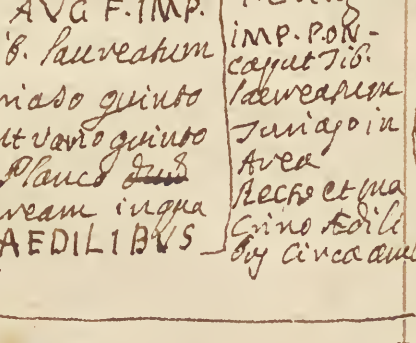 AVG F. IMP.
ib. laureatum
niaso quinto
nt vario quinto
Planco
ream in qua
AEDILIBVS
IMP. PON-
caput Tib.
laureatum
Area
Recto et ma
crino Ædili
bus circa